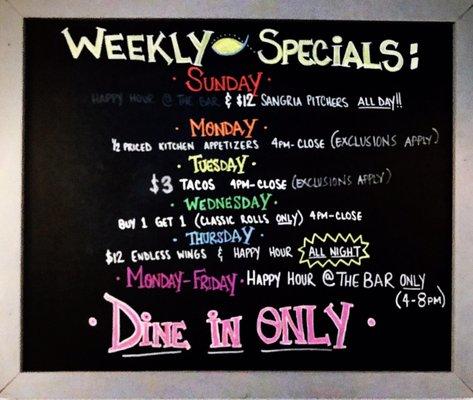 WEEKLY SPECIALS:
· SUNDAY ·
HAPPY HOUR @ THE BAR & $12 SANGRIA PITCHERS ALL DAY!!
· MONDAY ·
½ PRICED KITCHEN APPETIZERS 4PM-CLOSE (EXCLUSIONS APPLY)
· TUESDAY ·
$3 TACOS 4PM-CLOSE (EXCLUSIONS APPLY)
· WEDNESDAY ·
BUY 1 GET 1 (CLASSIC ROLLS ONLY) 4PM-CLOSE
· THURSDAY ·
$12 ENDLESS WINGS & HAPPY HOUR ALL NIGHT
· MONDAY-FRIDAY · HAPPY HOUR @ THE BAR ONLY
(4-8PM)
· DINE IN ONLY ·